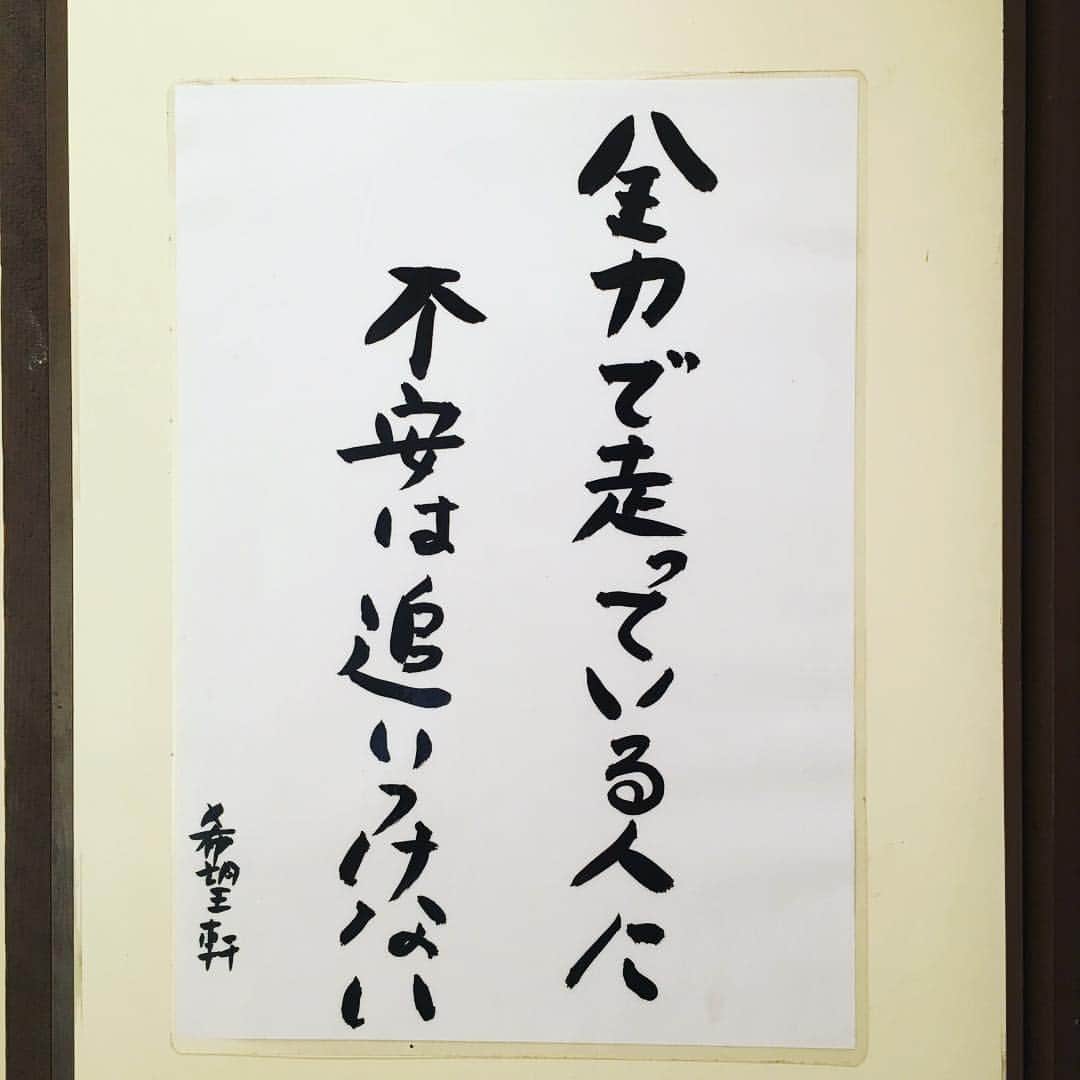 全力で走っている人に
不安は追いつけない
希望軒